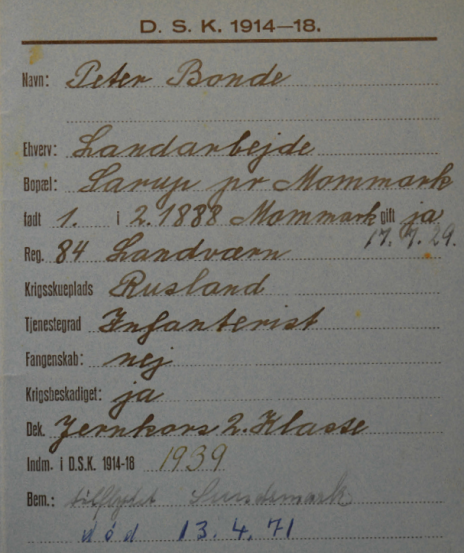 D. S. K. 1914—18.
Navn: Peter Bonde
Erhverv: Landarbejde
Bopæl: Sarup pr Mommark
født 1. i 2. 1888 Mommark gift ja
17. 7. 29.
Reg. 84 Landværn
Krigsskueplads Rusland
Tjenestegrad Infanterist
Fangenskab: nej
Krigsbeskadiget: ja
Dek. Jernkors 2. Klasse
Indm. i D.S.K. 1914-18 1939
Bem.: tilflyttet
død 13.4.71